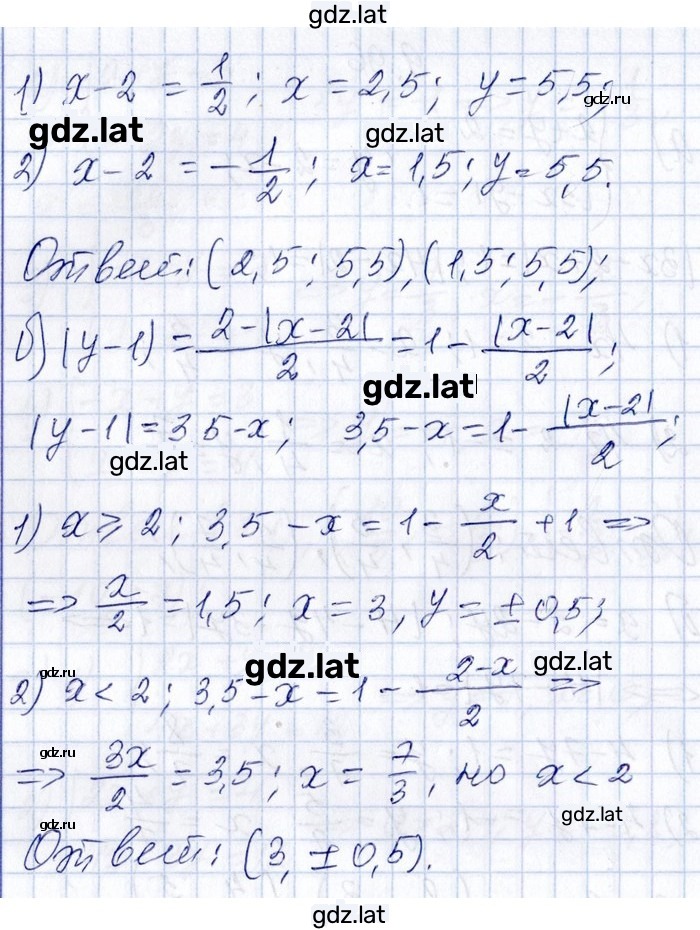 gdz.lat
1) x-2 = 1/2; x = 2,5; y = 5,5;
gdz.ru
gdz.lat gdz.lat
2) x-2 = -1/2; x = 1,5; y = 5,5.
Ответ: (2,5; 5,5), (1,5; 5,5);
б) |y-1| = (2-|x-2|)/2 = 1 - |x-2|/2;
gdz.lat
|y-1| = 3 5-x; 3,5-x = 1 - |x-2|/2;
gdz.lat
1) x ⩾ 2; 3,5 - x = 1 - x/2 + 1 =>
=> x/2 = 1,5; x = 3, y = ±0,5;
gdz.ru gdz.lat gdz.lat
2) x < 2; 3,5-x = 1 - (2-x)/2 =>
gdz.ru
=> 3x/2 = 3,5; x = 7/3, но x < 2
gdz.ru gdz.lat
Ответ: (3, ±0,5).
gdz.lat